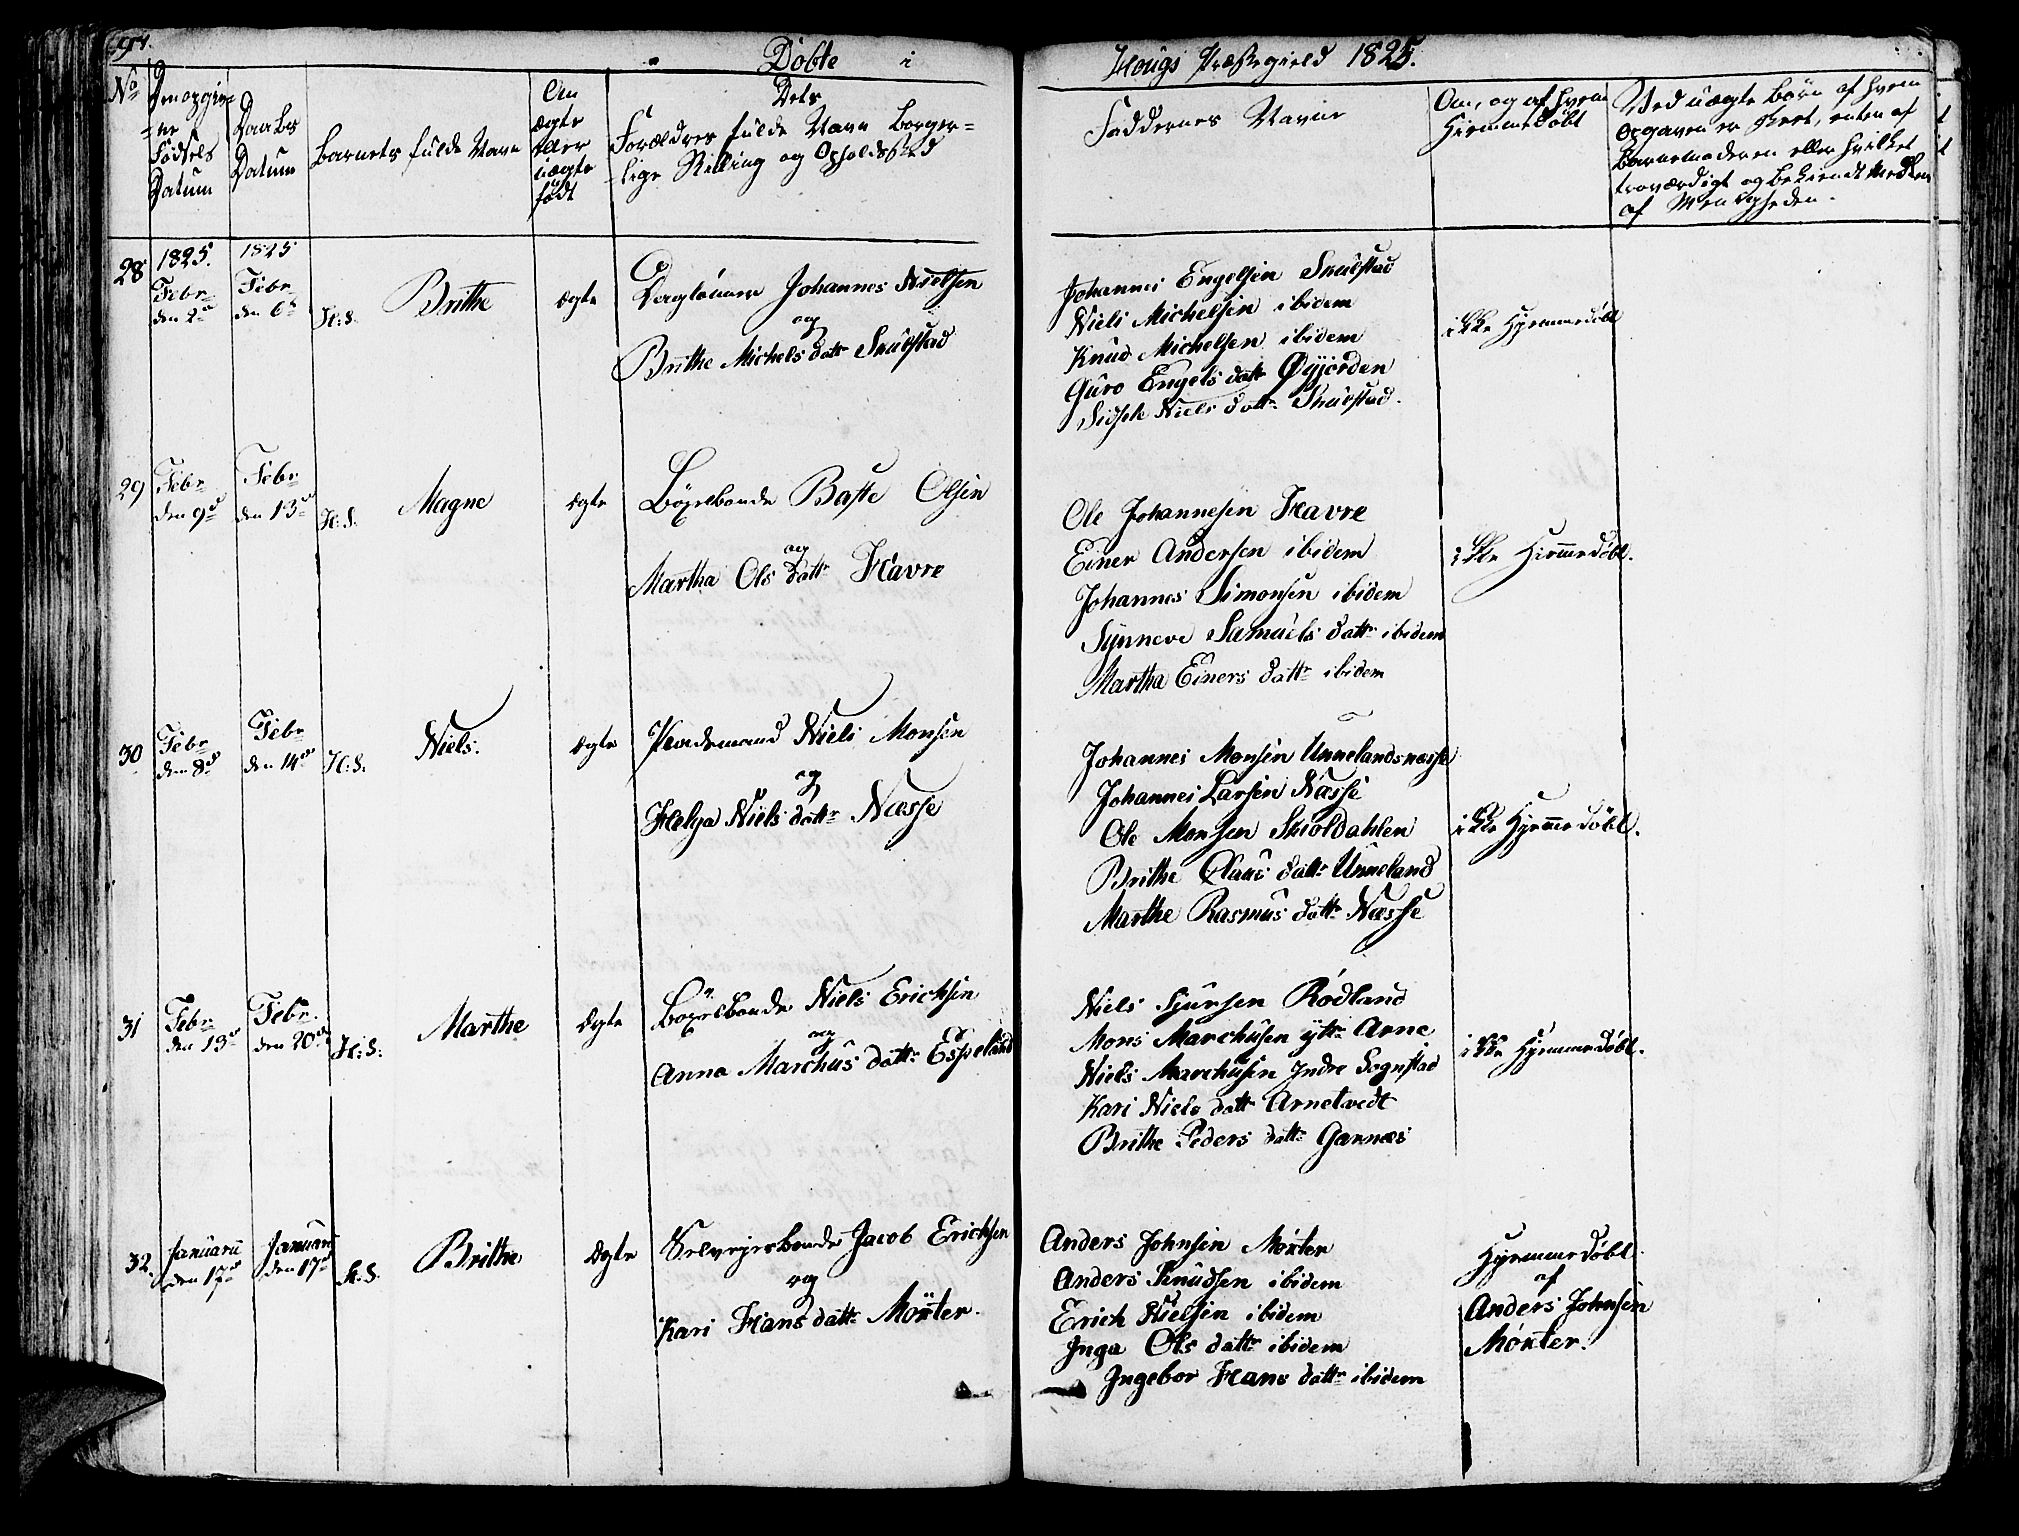 Døbte i Hougs Præstegield 1825.
No
Den opgiv-
-ne
Fødsels
Datum
Daabs
Datum
Barnets fulde Navn
Om
ægte
eller
uægte
født
Dets
Forældres fulde Navn Borger-
-lige Stilling og Opholdssted
Faddernes Navne
Om, og af hvem
Hiemmedøbt
Ved uægte Børn af hvem
Opgaven er skeet, enten af
Barnemoderen eller hvilket
troværdigt og bekiendt Medlem
af Menigheden.
28
1825.
Febr
den 2d
1825
Febr
den 6d
H:S.
Brithe
ægte
Daglønner Johannes Nielsen
og
Brithe Michels datr Skulstad
Johannes Engelsen Skulstad
Niels Michelsen ibidem
Knud Michelsen ibidem
Guro Engels datr Øyjorden
Sidsele Niels datr Skulstad.
ikke Hyemmedøbt
29
Febr
den 9d
Febr
den 13d
H:S.
Magne
ægte
Bøxelbonde Baste Olsen
og
Martha Ols datr Havre
Ole Johannesen Havre
Einer Andersen ibidem
Johannes Simonsen ibidem
Synneve Samuels datr ibidem
Martha Einers datr ibidem
ikke Hiemmedøbt.
30
Febr
den 8d
Febr
den 14d
H:S.
Niels.
ægte
Niels Monsen
og
Helga Niels datr Næsse
Johannes Monsen Unnelandsnæsse
Johannes Larsen Næsse
Ole Monsen Skioldahlen
Brithe Claus datr Unneland
Marthe Rasmus datr Næsse
ikke Hyemmedøbt.
31
Febr
den 13d
Febr.
den 20d
H:S.
Marthe
Ægte
Bøxelbonde Niels Ericksen
og
Anna Marchus datr Espeland
Niels Sjursen Rødland
Mons Marchusen ytr Arne
Niels Marchusen Indre Sognstad
Kari Niels datr Arnetvedt
Brithe Peders datr Garnæs
ikke Hyemmedøbt.
32.
Januarii
den 17d
Januarii
den 17d
H.S.
Brithe
Ægte
Selvejerbonde Jacob Ericksen
og
Kari Hans datr Møxter.
Anders Johnsen Møxter
Anders Knudsen ibidem
Erich Nielsen ibidem
Inga Ols datr ibidem
Ingebor Hans datr ibidem
Hyemmedøbt
af
Anders Johnsen
Møxter.